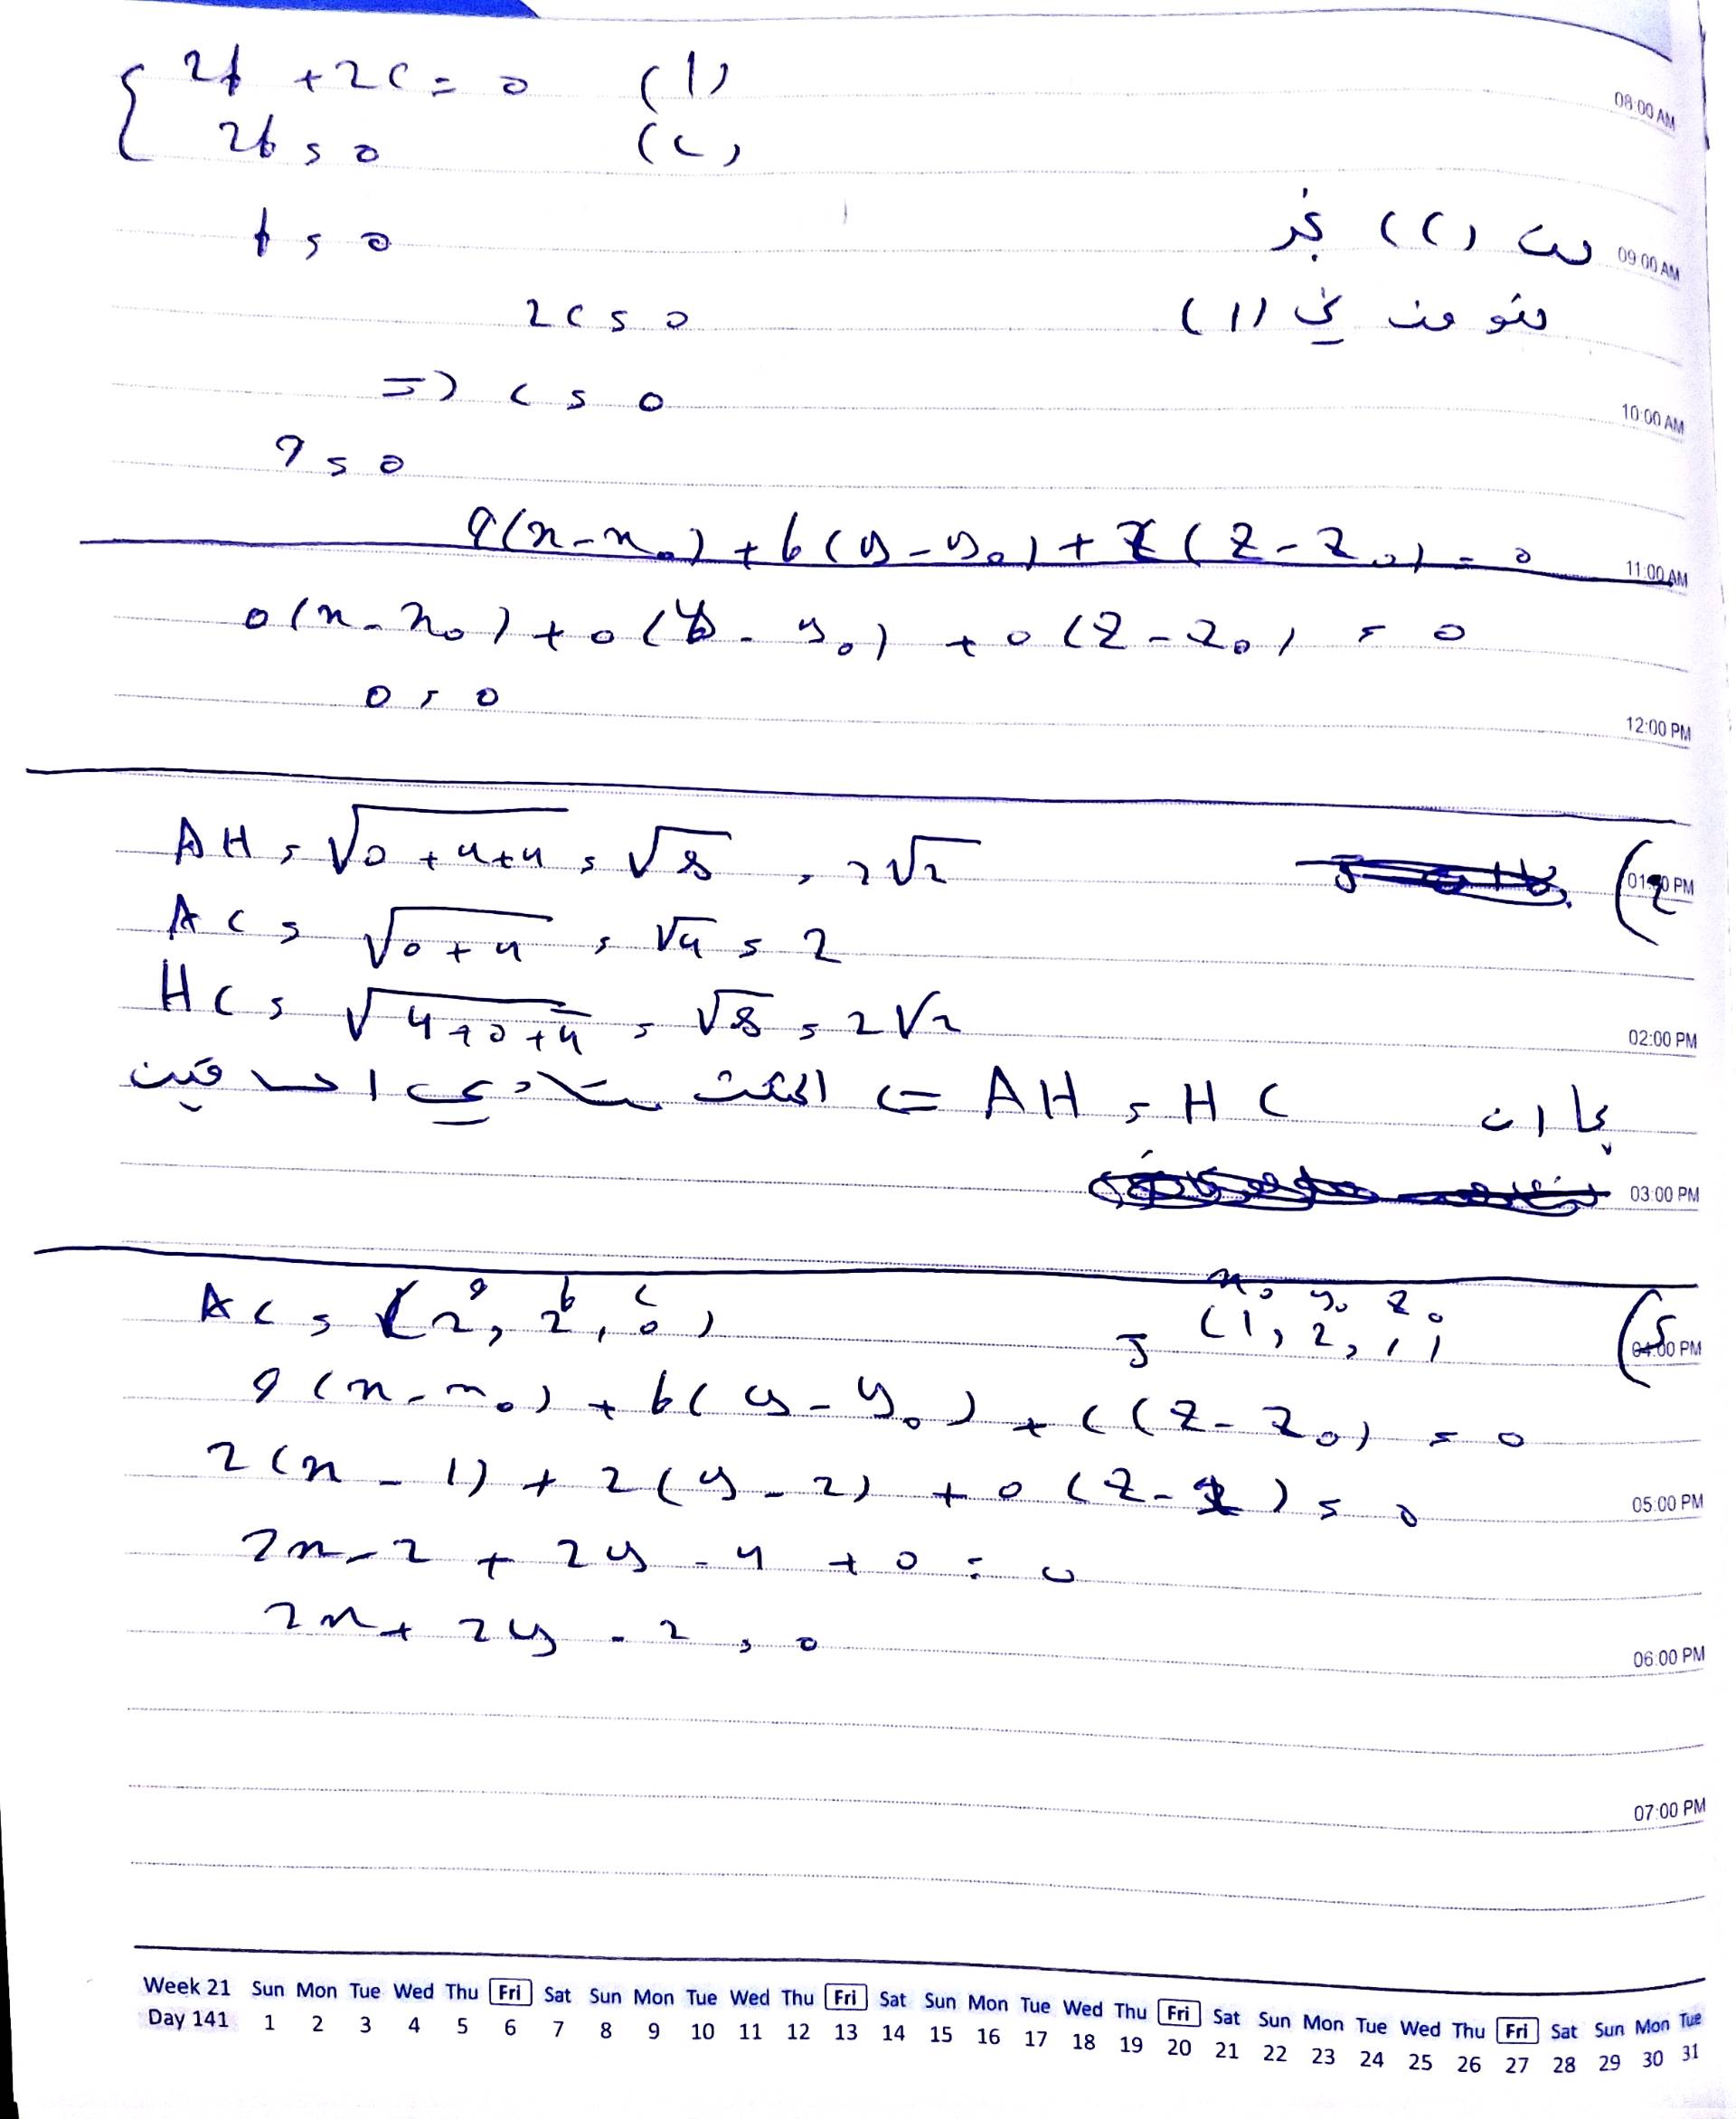 2b + 2c = 0 (1)
2b = 0 (2)
08:00 AM
b = 0 من (2) نجد
09:00 AM
2c = 0 نعوض في (1)
=> c = 0
10:00 AM
a = 0
a(x - x₀) + b(y - y₀) + c(z - z₀) = 0
11:00 AM
0(x - x₀) + 0(y - y₀) + 0(z - z₀) = 0
0 = 0
12:00 PM
AH = √0 + 4 + 4 = √8 = 2√2
01:00 PM
AC = √0 + 4 = √4 = 2
HC = √4 + 0 + 4 = √8 = 2√2
02:00 PM
بما ان AH = HC <= المثلث متساوي الساقين
03:00 PM
x₀ y₀ z₀
a b c
AC = (2, 2, 0) J (1, 2, 1) (5
04:00 PM
a(x - x₀) + b(y - y₀) + c(z - z₀) = 0
2(x - 1) + 2(y - 2) + 0(z - 1) = 0
05:00 PM
2x - 2 + 2y - 4 + 0 = 0
2x + 2y - 2 = 0
06:00 PM
07:00 PM
Week 21 Sun Mon Tue Wed Thu Fri Sat Sun Mon Tue Wed Thu Fri Sat Sun Mon Tue Wed Thu Fri Sat Sun Mon Tue Wed Thu Fri Sat Sun Mon Tue
Day 141 1 2 3 4 5 6 7 8 9 10 11 12 13 14 15 16 17 18 19 20 21 22 23 24 25 26 27 28 29 30 31